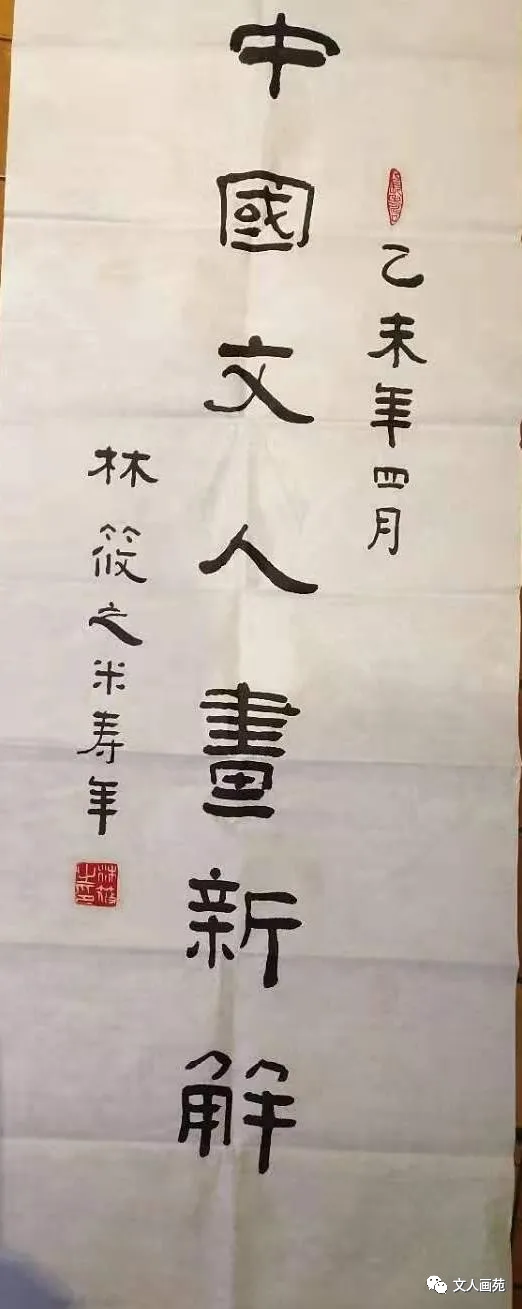 乙未年四月
中國文人畫新解
林筱之米寿年
林筱之印
文人画苑